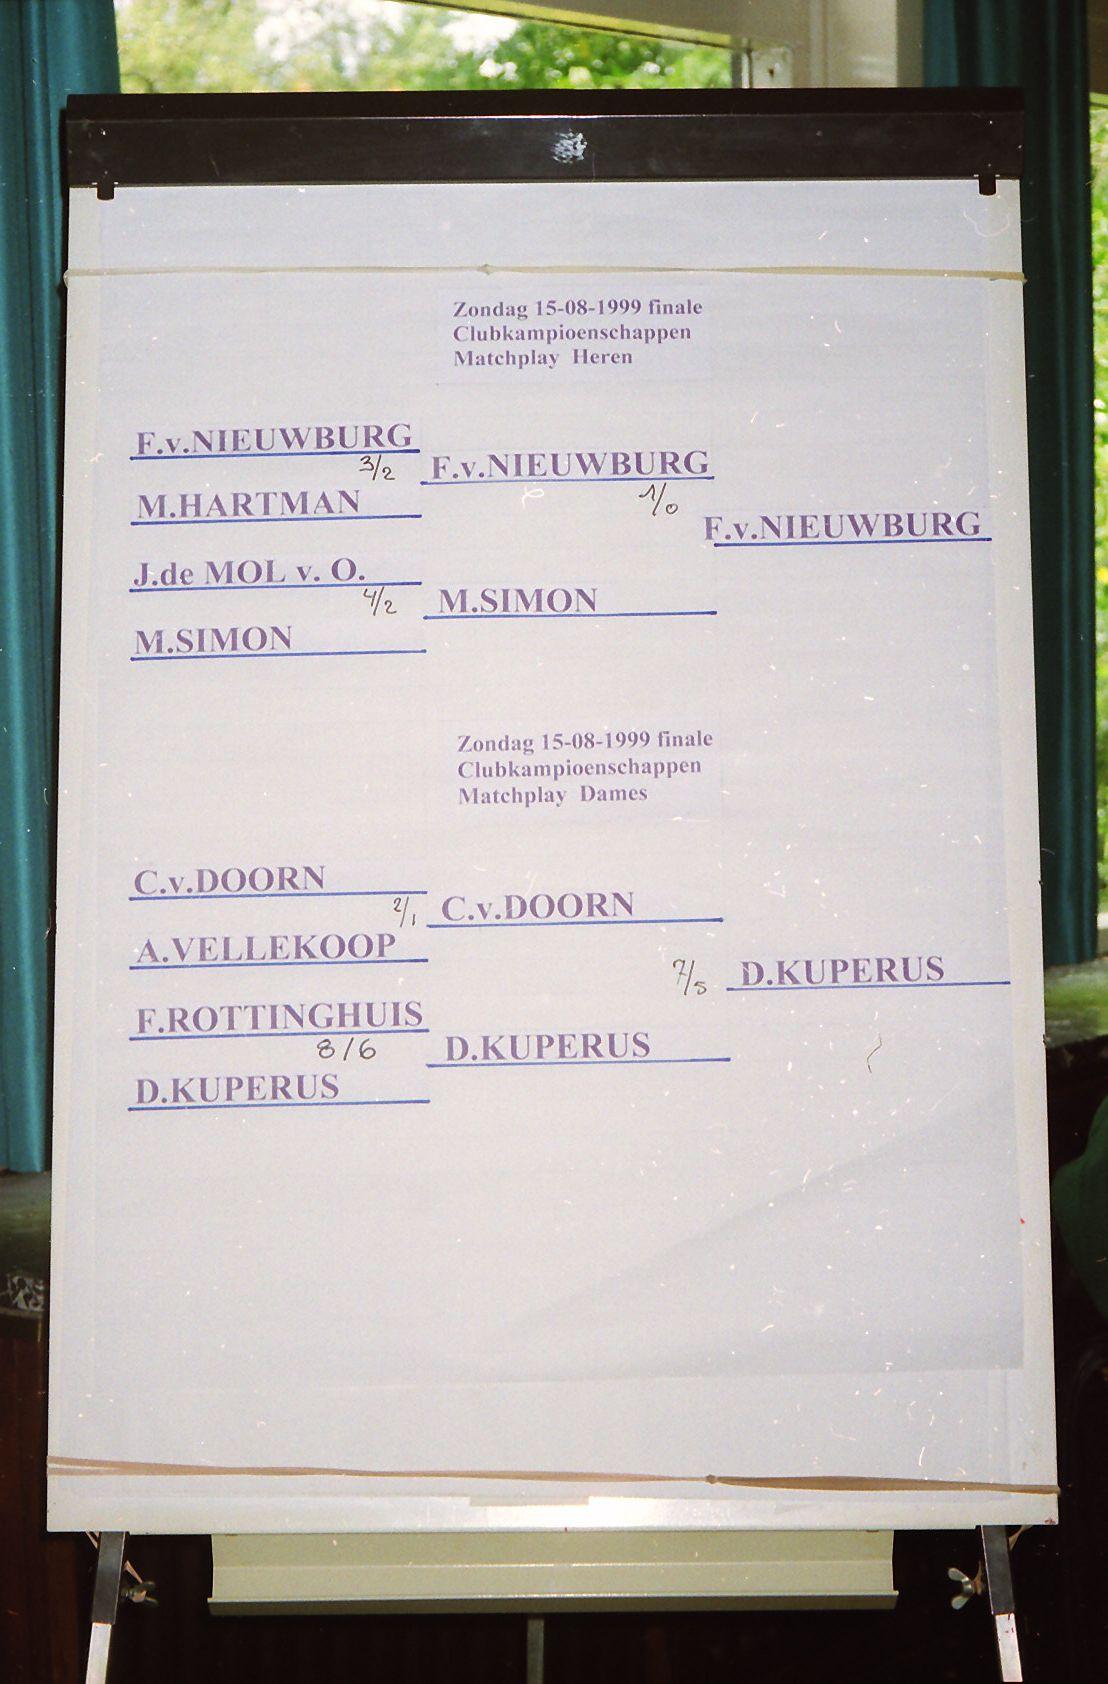 Zondag 15-08-1999 finale
Clubkampioenschappen
Matchplay Heren
F.v.NIEUWBURG
3/2
F.v.NIEUWBURG
M.HARTMAN
1/0
F.v.NIEUWBURG
J.de MOL v. O.
4/2
M.SIMON
M.SIMON
Zondag 15-08-1999 finale
Clubkampioenschappen
Matchplay Dames
C.v.DOORN
2/1
C.v.DOORN
A.VELLEKOOP
7/5
D.KUPERUS
F.ROTTINGHUIS
8/6
D.KUPERUS
D.KUPERUS